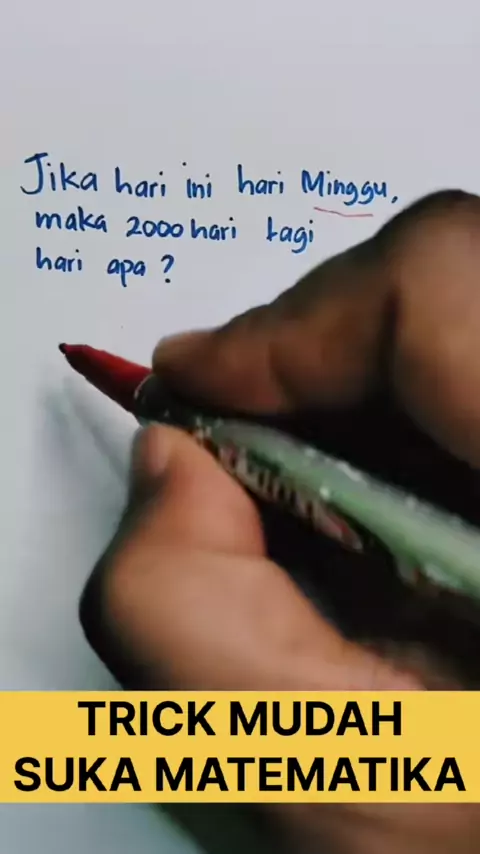 Jika hari ini hari Minggu,
maka 2000 hari lagi
hari apa?
TRICK MUDAH
SUKA MATEMATIKA